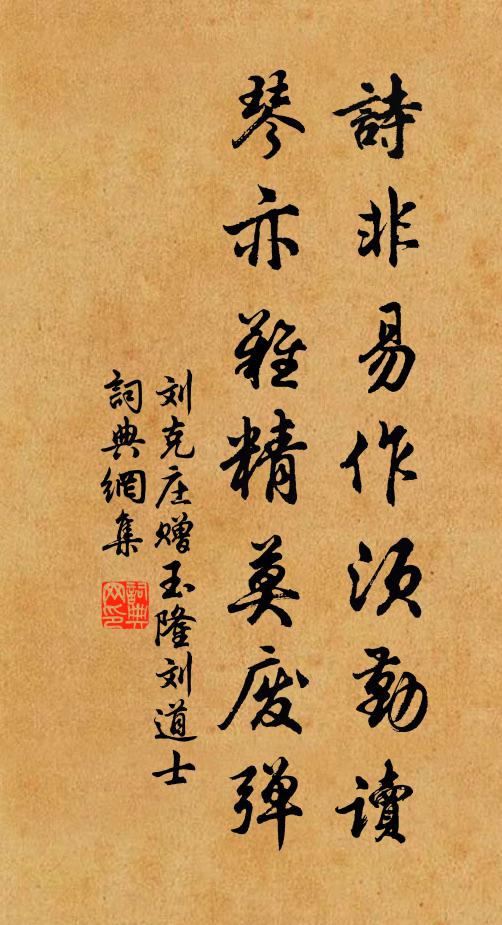 詩非易作須勤讀
琴亦難精莫廢彈
刘克庄赠玉隆刘道士
詞典網集
詞典网印